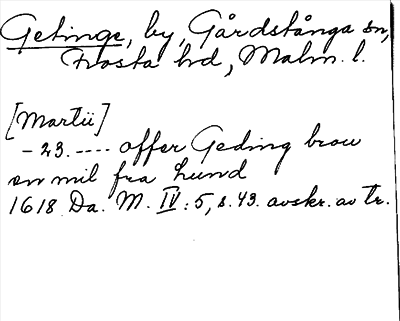 Getinge, by, Gårdstånga sn,
Frosta hd, Malm. l.
[Martii]
- 23. ---- offer Geding brou
en mil fra Lund
1618 Da. M. IV: 5, s. 43. avskr. av tr.